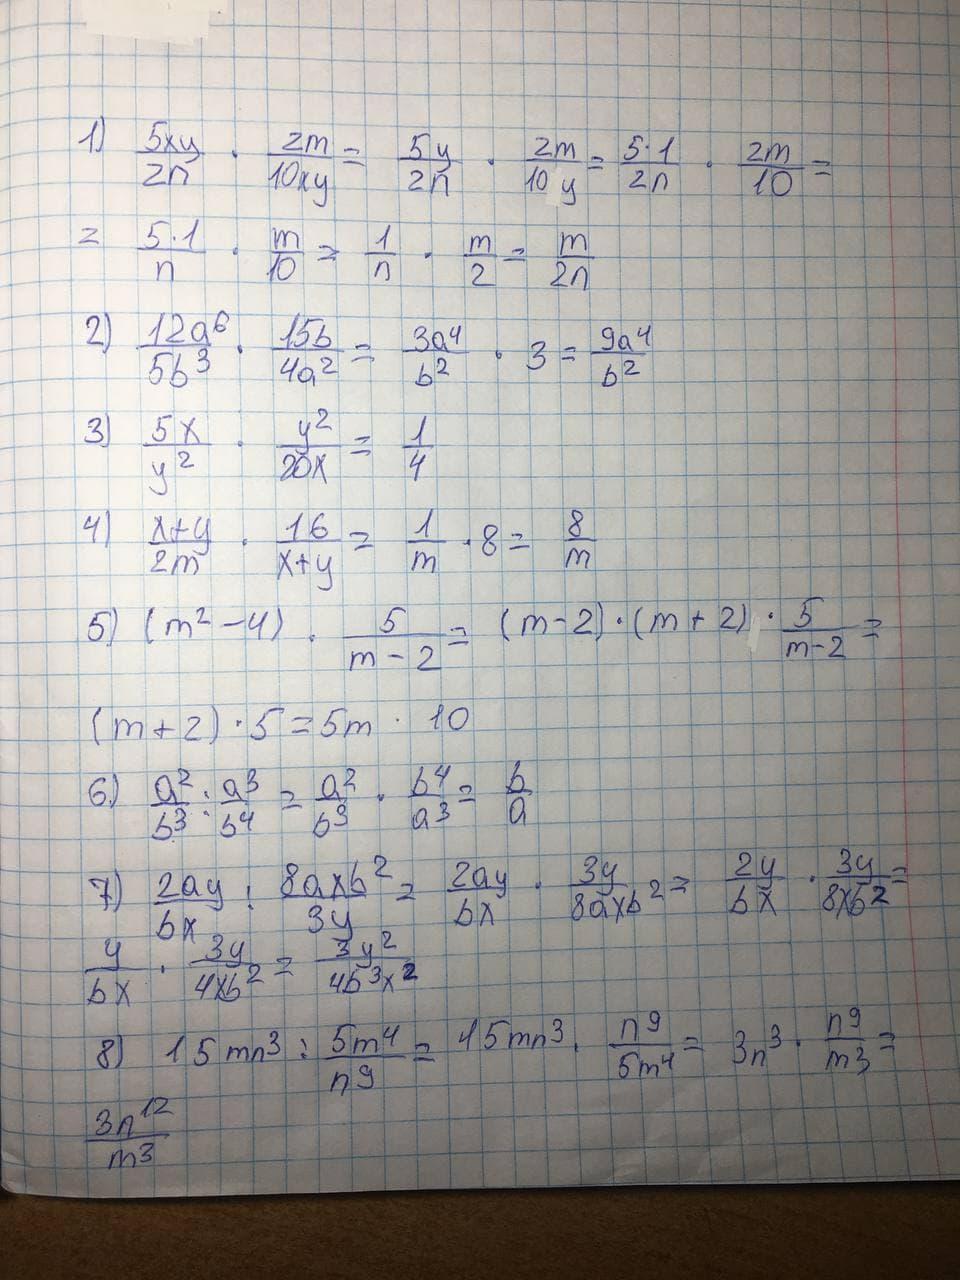 1) 5xy/2n · 2m/10xy = 5y/2n · 2m/10y = 5·1/2n · 2m/10 =
= 5·1/n · m/10 = 1/n · m/2 = m/2n
2) 12a⁶/5b³ · 15b/4a² = 3a⁴/b² · 3 = 9a⁴/b²
3) 5x/y² · y²/20x = 1/4
4) x+y/2m · 16/x+y = 1/m · 8 = 8/m
5) (m²-4) · 5/m-2 = (m-2)·(m+2) · 5/m-2 =
(m+2)·5=5m · 10
6) a²/b³ : a³/b⁴ = a²/b³ · b⁴/a³ = b/a
7) 2ay/bx : 8axb²/3y = 2ay/bx · 3y/8axb² = 2y/bx · 3y/8xb² =
y/bx · 3y/4xb² = 3y²/4b³x²
8) 15mn³ : 5m⁴/n9 = 15mn³ · n9/5m⁴ = 3n³ · n9/m3 =
3n¹²/m3